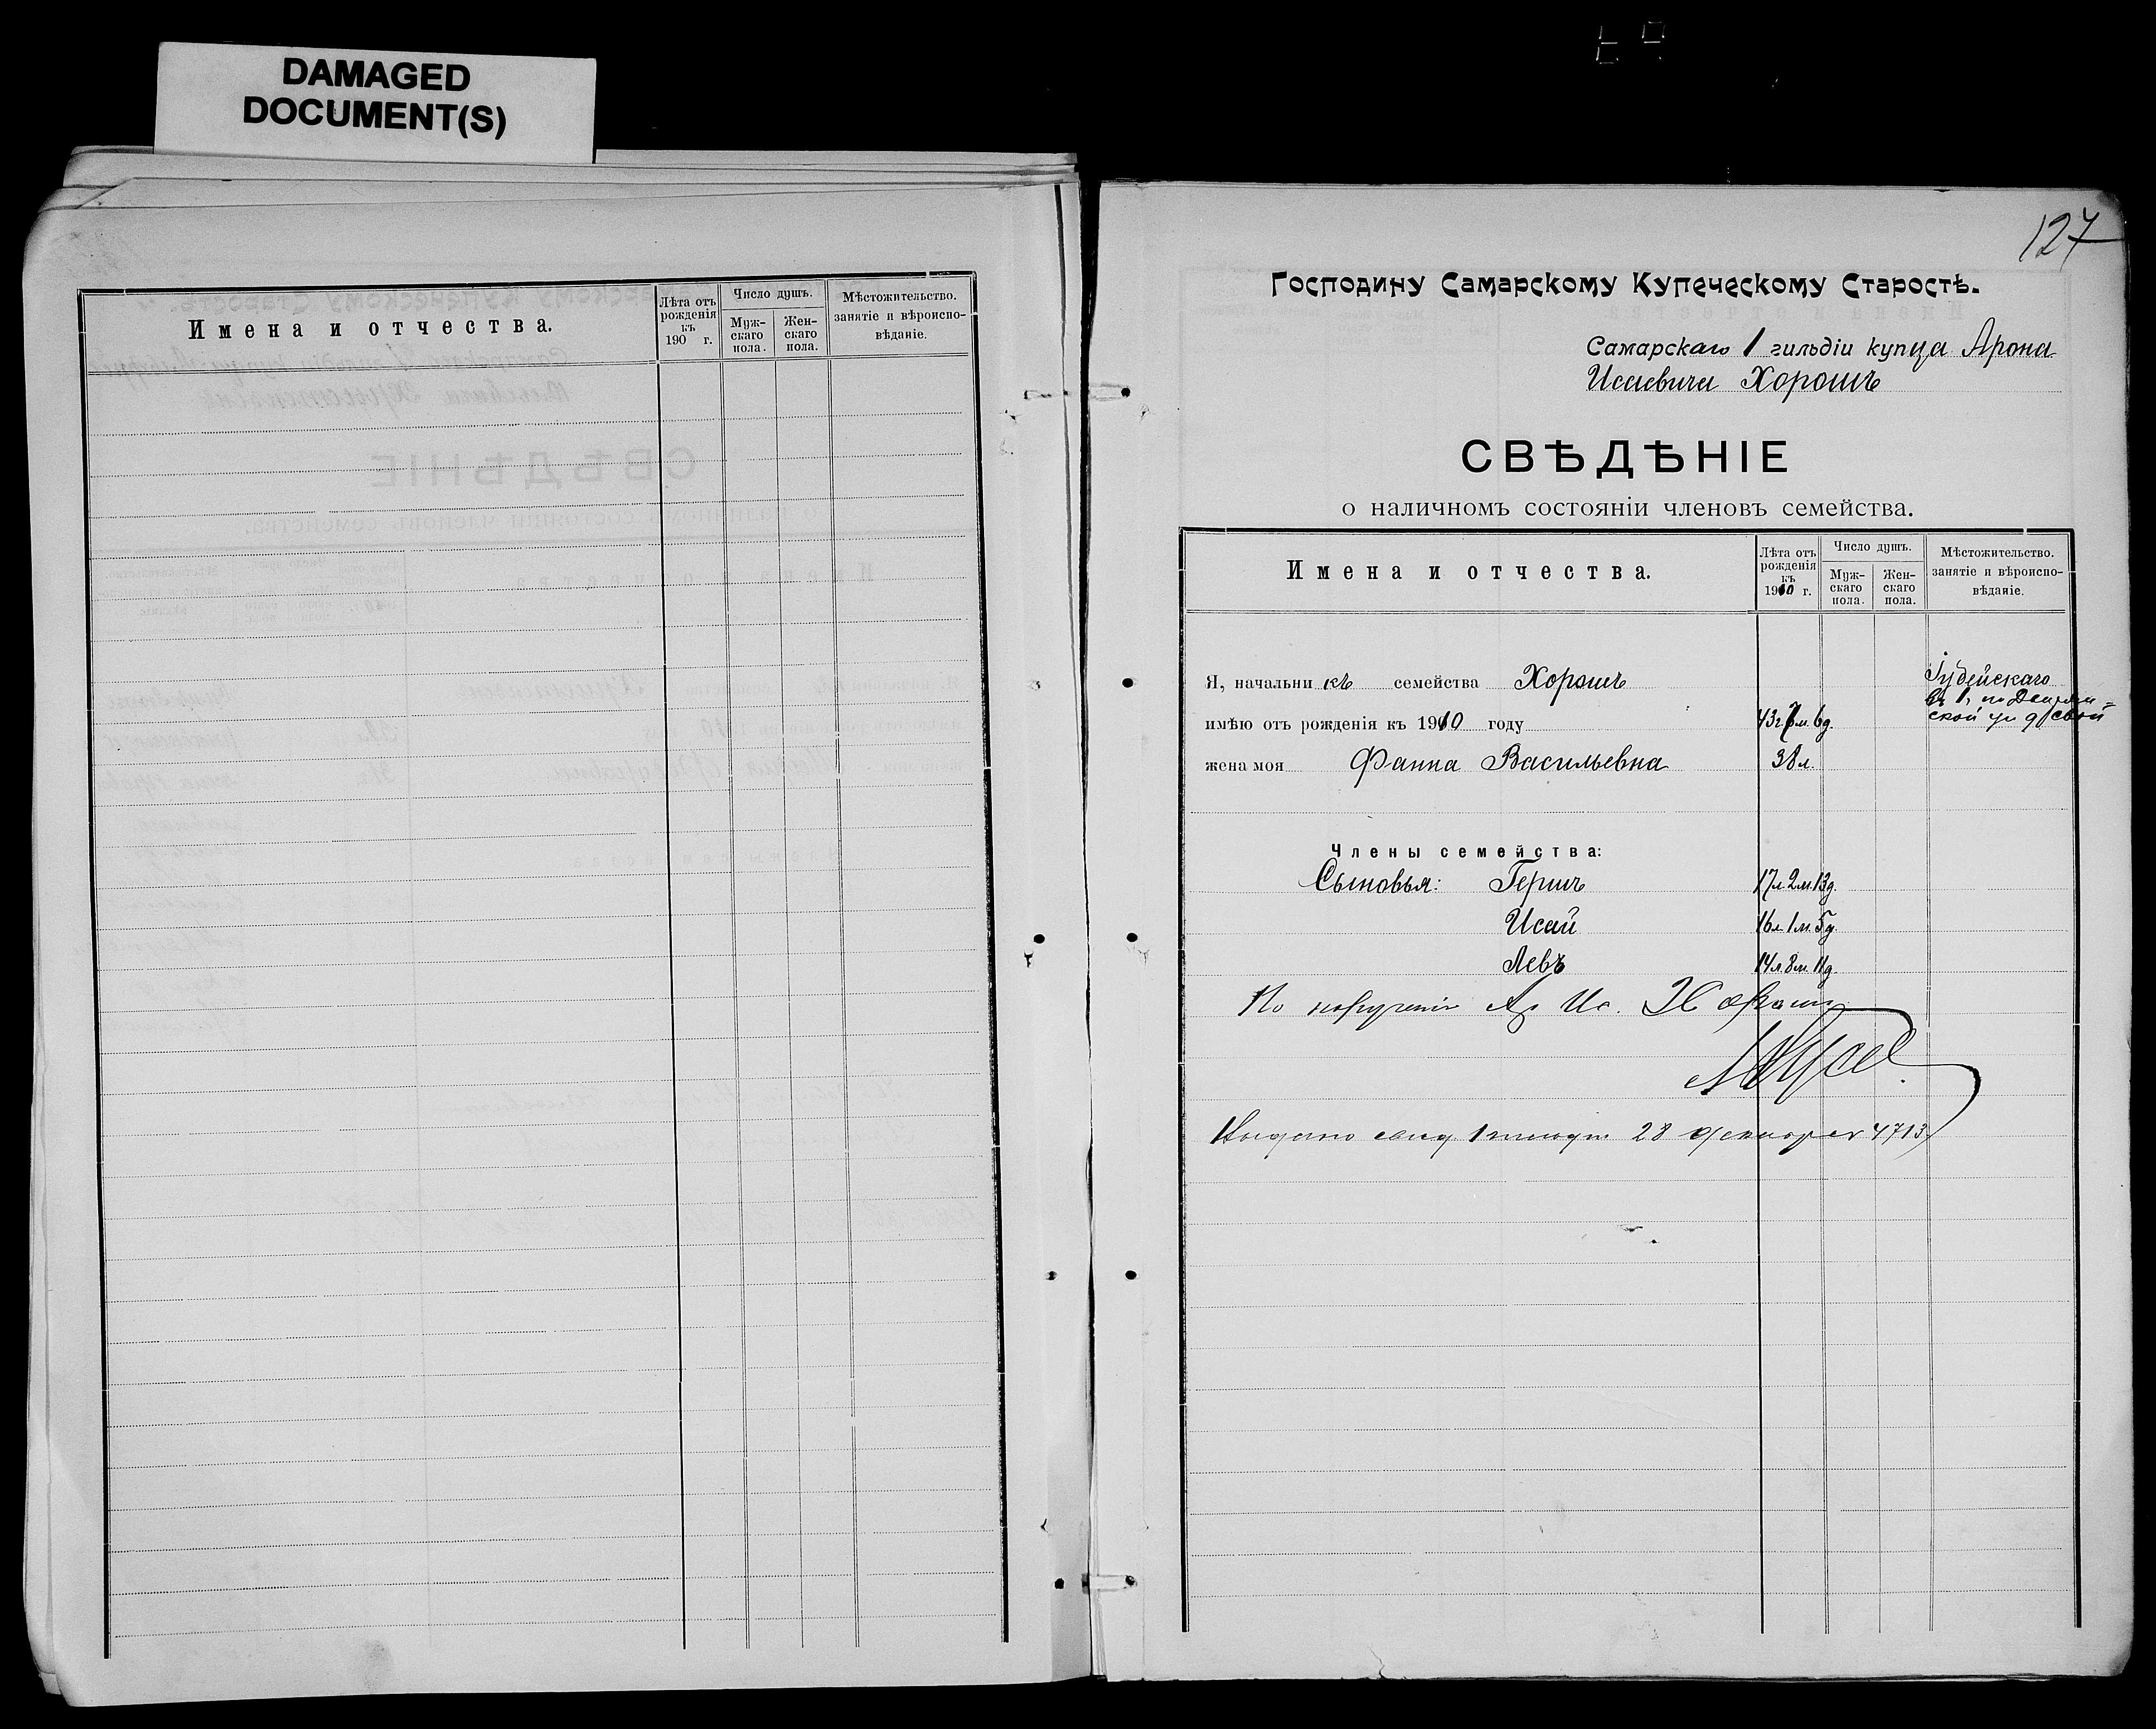 DAMAGED
DOCUMENT(S)
Имена и отчества.
Лѣта отъ рожденія къ 190 г.
Число душъ.
Муж-скаго пола.
Жен-скаго пола.
Мѣстожительство. занятіе и вѣроиспо-вѣданіе.
127
Господину Самарскому Купеческому Старостѣ.
Самарскаго 1 гильдіи купца Арона
Исаевича Хорошъ
СВѢДѢНІЕ
о наличномъ состояніи членовъ семейства.
Имена и отчества.
Лѣта отъ рожденія къ 1910 г.
Число душъ.
Муж-скаго пола.
Жен-скаго пола.
Мѣстожительство. занятіе и вѣроиспо-вѣданіе.
Я, начальникъ семейства Хорошъ
Іудейскаго
имѣю отъ рожденія къ 1910 году 43г. м. 6д.
ской ул д свой
жена моя Фанна Васильевна 38 л.
Члены семейства:
Сыновья: Гершъ 17л. 2м. 13д.
Исай 16л. 1м. 5д.
Левъ 14л. 8м. 11д.
По порученію Ар Ис. Хорошъ
Выдано свид 1 гильд 28 декабря 4713